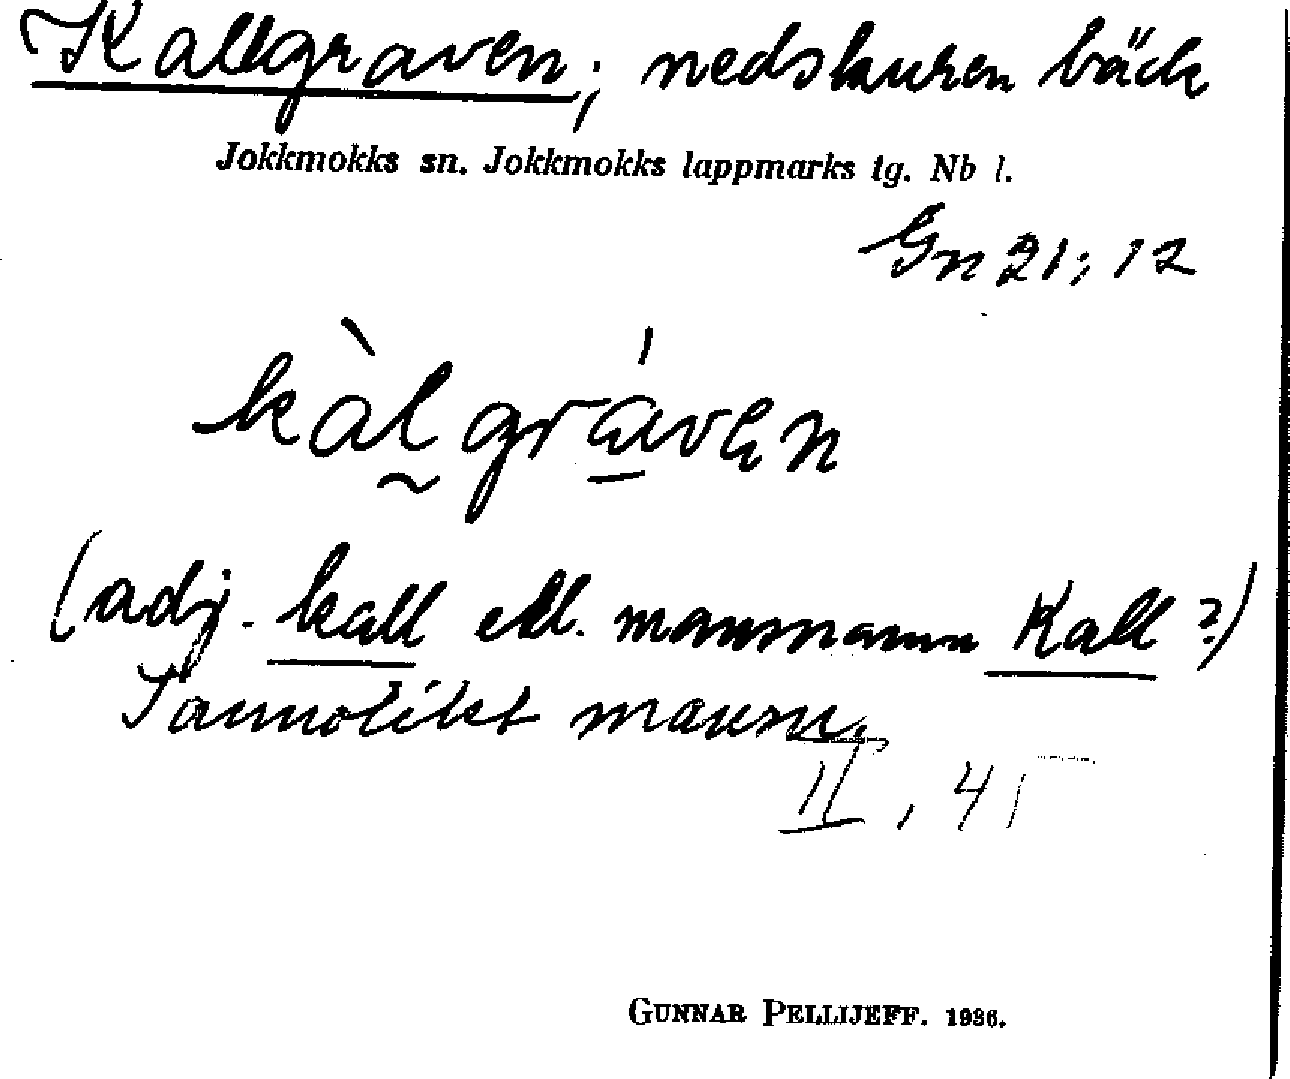 Kallgraven; nedskuren bäck
Jokkmokks sn. Jokkmokks lappmarks tg. Nb l.
Gn 21; 12
kàlgráven
(adj. kall ell. mansnamn Kall?)
Sannolikt mansn.
II, 45
GUNNAR PELLIJEFF. 1936.